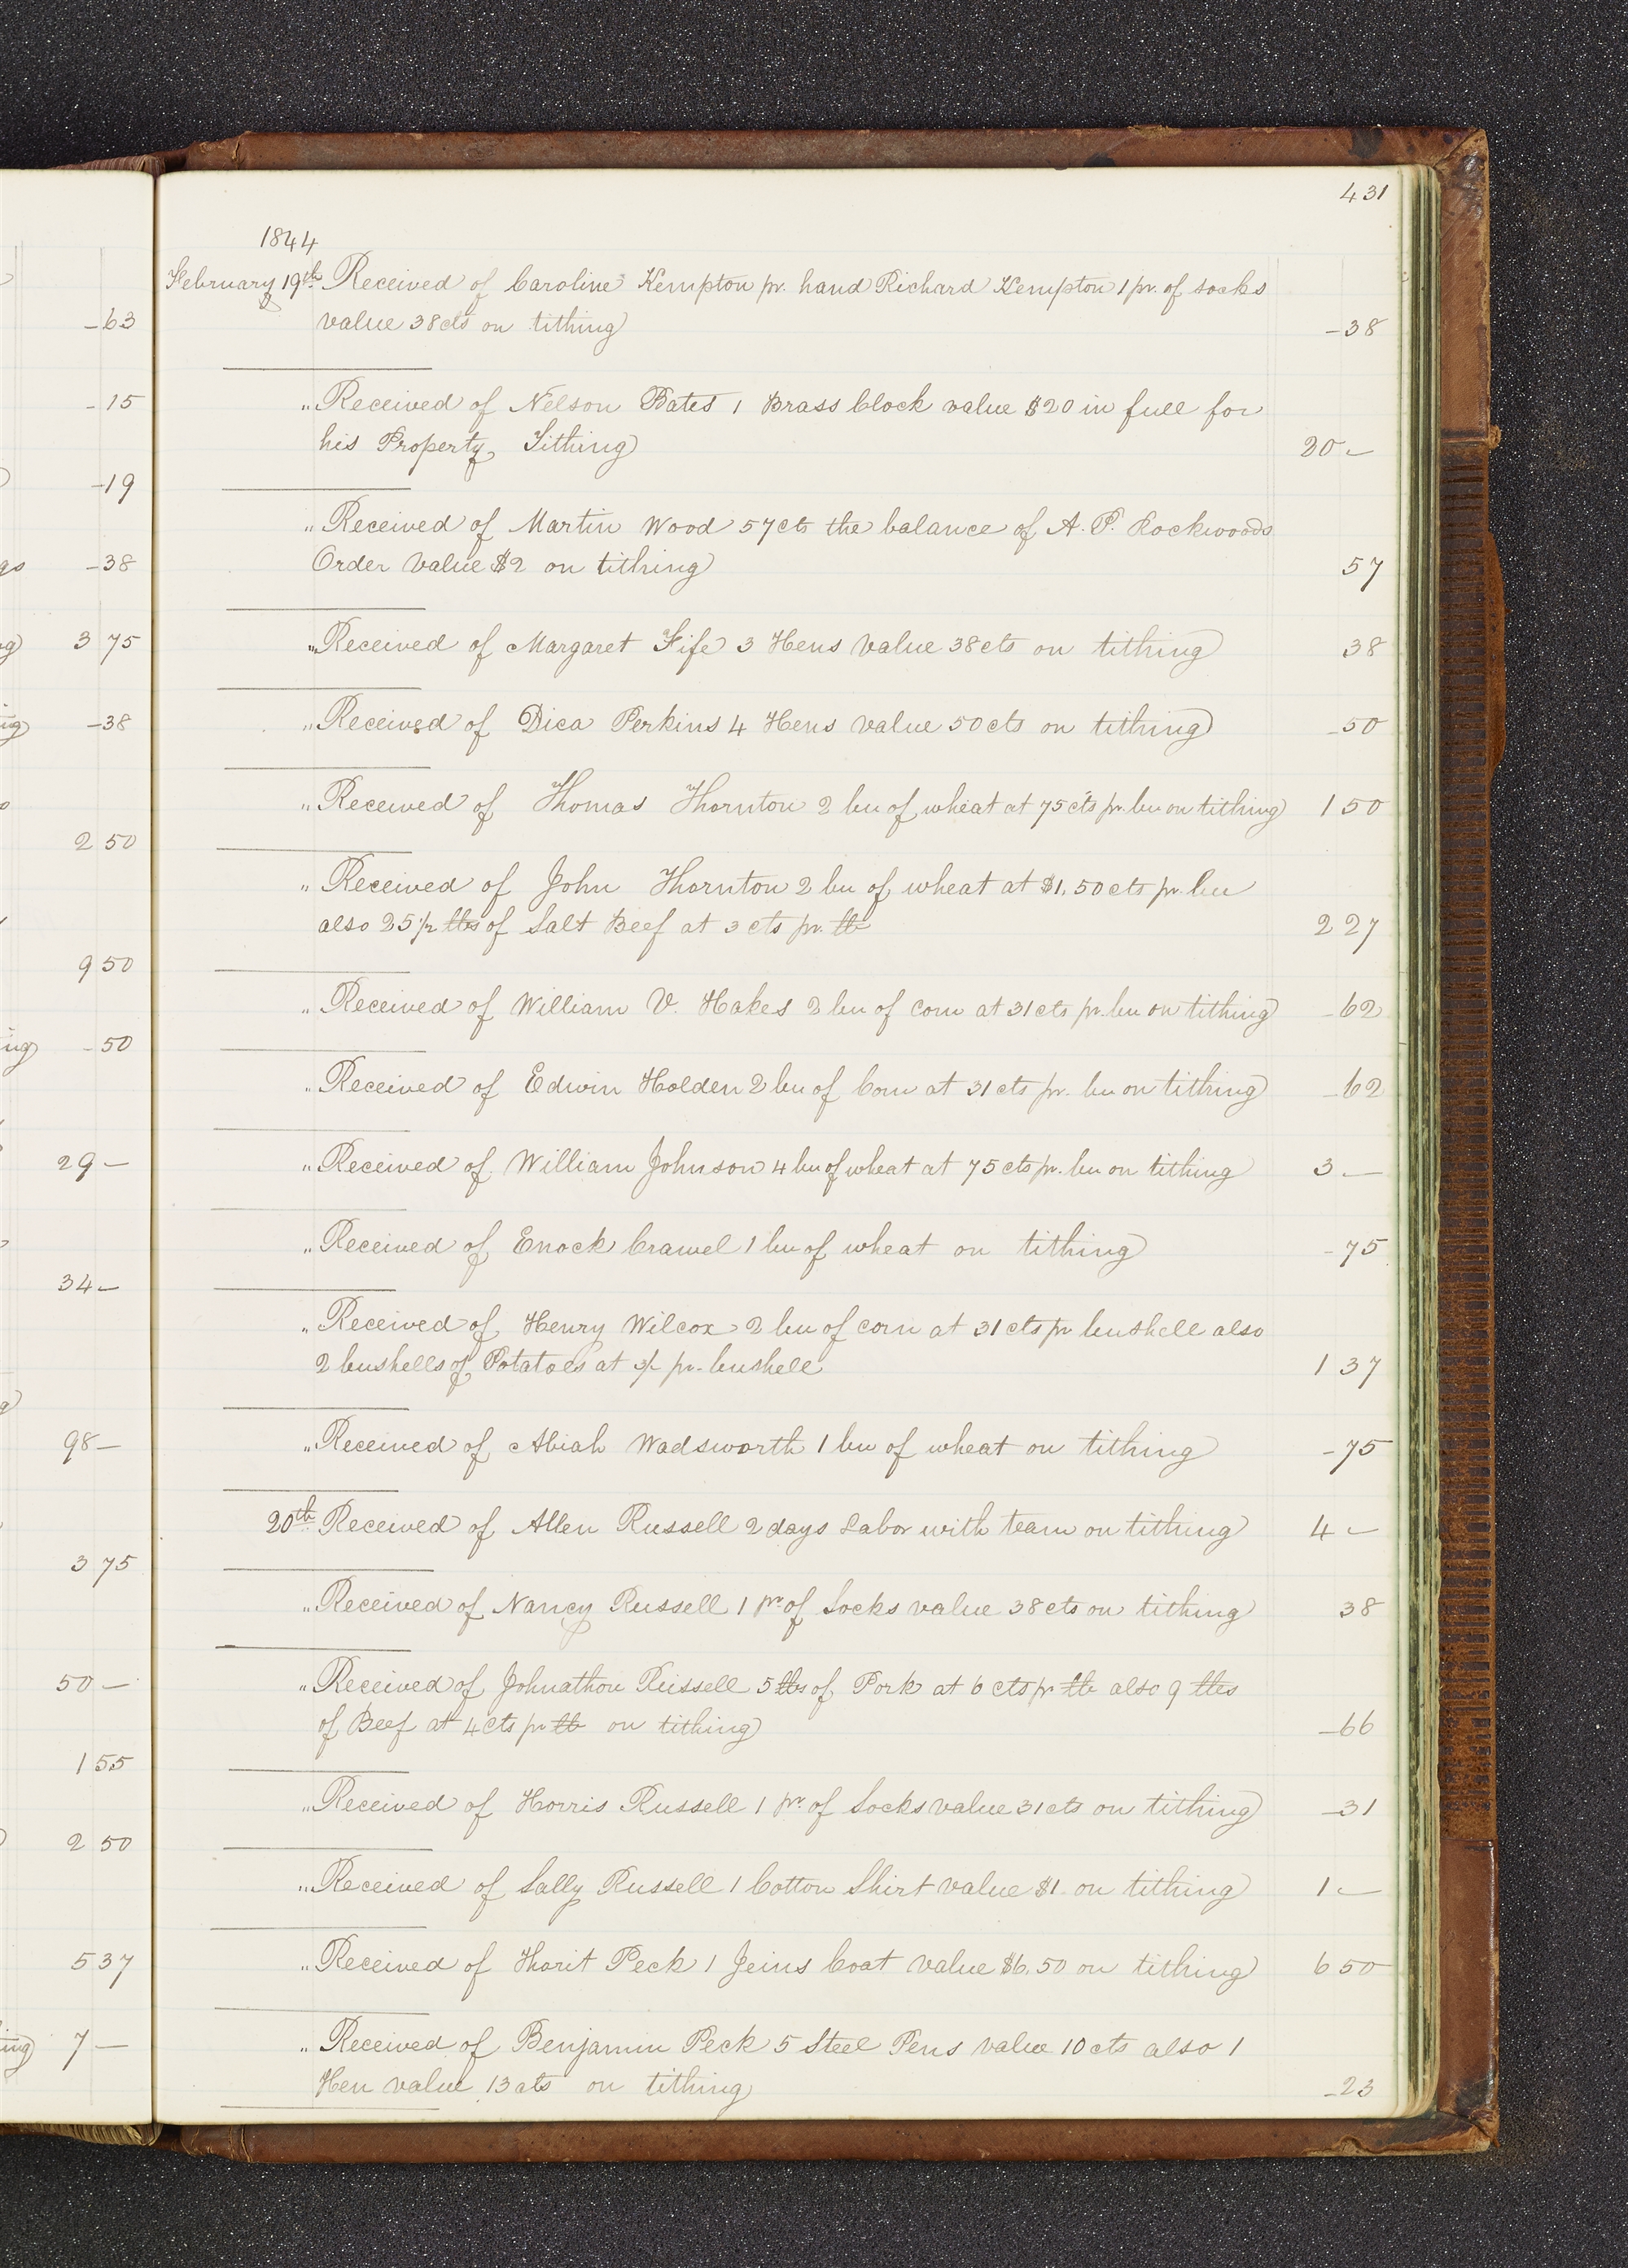 431
1844
February 19th Received of Caroline Kempton pr. hand Richard Kempton 1 pr. of socks
value 38 cts on tithing -38
" Received of Nelson Bates 1 Brass Clock value $20 in full for
his Property Tithing 20 -
" Received of Martin Wood 57 cts the balance of A. P. Rockwoods
Order value $2 on tithing 57
" Received of Margaret Fife 3 Hens value 38 cts on tithing 38
" Received of Dica Perkins 4 Hens value 50 cts on tithing -50
" Received of Thomas Thornton 2 bu of wheat at 75 cts pr. bu on tithing 1 50
" Received of John Thornton 2 bu of wheat at $1.50 cts pr. bu
also 25 1/2 lbs of Salt Beef at 3 cts pr. lb 2 27
" Received of William V. Hakes 2 bu of corn at 31 cts pr. bu on tithing -62
" Received of Edwin Holden 2 bu of Corn at 31 cts pr. bu on tithing -62
" Received of William Johnson 4 bu of wheat at 75 cts pr. bu on tithing 3 -
" Received of Enock Crawel 1 bu of wheat on tithing -75
" Received of Henry Wilcox 2 bu of corn at 31 cts pr bushell also
2 bushells of Potatoes at 3/- pr. bushell 1 37
" Received of Abiah Wadsworth 1 bu of wheat on tithing -75
20th Received of Allen Russell 2 days Labor with team on tithing 4 -
" Received of Nancy Russell 1 pr of Socks value 38 cts on tithing 38
" Received of Johnathon Russell 5 lbs of Pork at 6 cts pr lb also 9 lbs
of Beef at 4 cts pr lb on tithing -66
" Received of Horris Russell 1 pr of Socks value 31 cts on tithing -31
" Received of Sally Russell 1 Cotton Shirt value $1 on tithing 1 -
" Received of Thorit Peck 1 Jeins Coat value $6.50 on tithing 6 50
" Received of Benjamin Peck 5 Steel Pens value 10 cts also 1
Hen value 13 cts on tithing -23
-63
-15
-19
-38
3 75
-38
2 50
9 50
-50
29 -
34 -
98 -
3 75
50 -
1 55
2 50
5 37
7 -